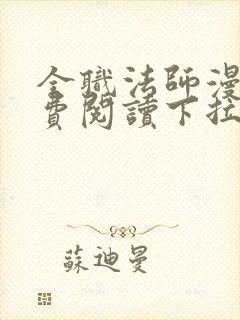 全職法師漫
費閱讀下拉
蘇迪曼